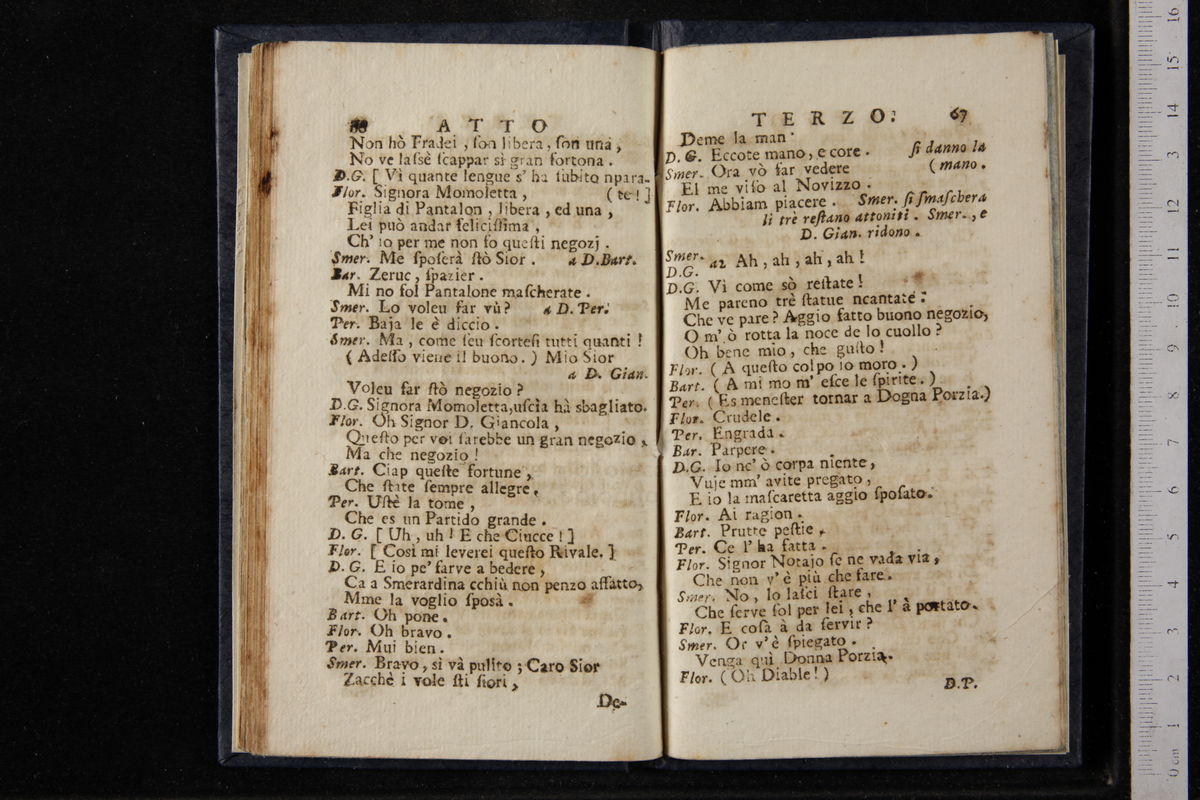 ATTO
Non hò Fradei , ſon libera, ſon una ,
No ve laſsè ſcappar sì gran fortona .
D.G. [ Vì quante lengue s' ha ſubito npara-
Flor. Signora Momoletta , ( te ! ]
Figlia di Pantalon , libera , ed una ,
Lei può andar feliciſſima ,
Ch' io per me non ſo queſti negozj .
Smer. Me ſpoſerà ſtò Sior . a D.Bart.
Bar. Zeruc , ſpazier .
Mi no ſol Pantalone maſcherate .
Smer. Lo voleu far vù? a D. Per.
Per. Baja le è diccio .
Smer. Ma , come ſeu ſcorteſi tutti quanti !
( Adeſſo viene il buono. ) Mio Sior
a D. Gian.
Voleu far ſtò negozio ?
D.G. Signora Momoletta,uſcia hà sbagliato.
Flor. Oh Signor D. Giancola ,
Queſto per voi ſarebbe un gran negozio ,
Ma che negozio !
Bart. Ciap queſte fortune ,
Che ſtate ſempre allegre ,
Per. Uſtè la tome ,
Che es un Partido grande .
D. G. [ Uh , uh ! E che Ciucce ! ]
Flor. [ Così mi leverei queſto Rivale. ]
D. G. E io pe' farve a bedere ,
Ca a Smerardina cchiù non penzo affatto,
Mme la voglio ſposà .
Bart. Oh pone .
Flor. Oh bravo .
Per. Mui bien .
Smer. Bravo , sì và pulito ; Caro Sior
Zacchè i vole ſti ſiori ,
De-
TERZO. 67
Deme la man
D. G. Eccote mano, e core . ſi danno la
Smer. Ora vò far vedere ( mano .
El me viſo al Novizzo .
Flor. Abbiam piacere . Smer. ſi ſmaſchera
li trè reſtano attoniti . Smer. , e
D. Gian. ridono .
Smer.
a2 Ah , ah , ah , ah !
D.G.
D.G. Vì come sò reſtate !
Me pareno trè ſtatue ncantate .
Che ve pare ? Aggio fatto buono negozio,
O m' ò rotta la noce de lo cuollo ?
Oh bene mio , che guſto !
Flor. ( A queſto colpo io moro . )
Bart. ( A mi mo m' eſce le ſpirite . )
Per. ( Es meneſter tornar a Dogna Porzia.)
Flor. Crudele .
Per. Engrada .
Bar. Parpere .
D.G. Io nc' ò corpa niente ,
Vuje mm' avite pregato ,
E io la maſcaretta aggio ſpoſato.
Flor. Ai ragion .
Bart. Prutte peſtie .
Per. Ce l' ha fatta .
Flor. Signor Notajo ſe ne vada via ,
Che non v' è più che fare .
Smer. No , lo laſci ſtare ,
Che ſerve ſol per lei , che l' à portato.
Flor. E coſa à da ſervir ?
Smer. Or v' è ſpiegato .
Venga quì Donna Porzia.
Flor. ( Oh Diable ! )
D.P.